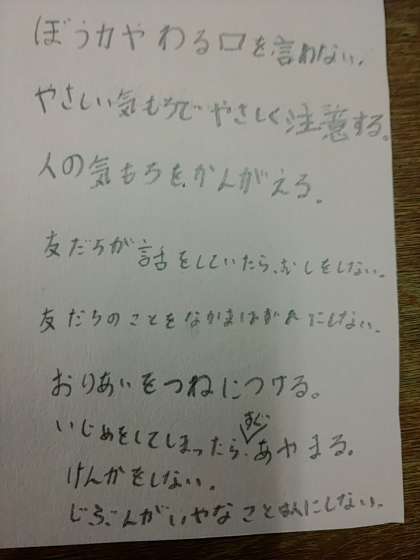 ぼう力やわる口を言わない。
やさしい気もちでやさしく注意する。
人の気もちを、かんがえる。
友だちが話をしていたら、むしをしない。
友だちのことをなかまはずれにしない。
おりあいをつねにつける。
いじめをしてしまったら、すぐあやまる。
けんかをしない。
じぶんがいやなことは人にしない。